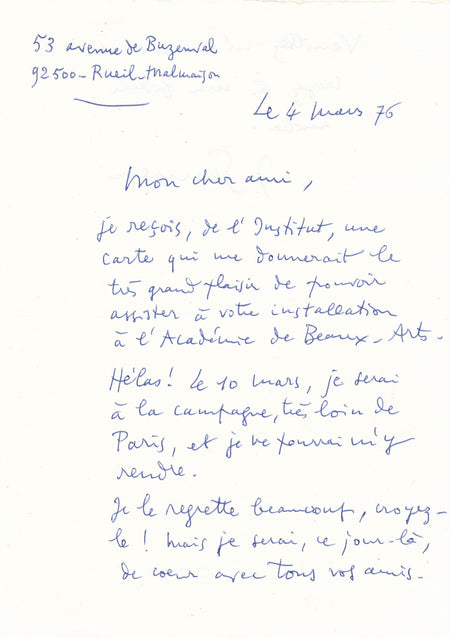 53 avenue de Buzenval
92500 - Rueil-Malmaison
Le 4 mars 76
Mon cher ami,
je reçois, de l'Institut, une
carte qui me donnerait le
très grand plaisir de pouvoir
assister à votre installation
à l'Académie de Beaux-Arts.
Hélas! Le 10 mars, je serai
à la campagne, très loin de
Paris, et je ne pourrai m'y
rendre.
Je le regrette beaucoup, croyez-
le! Mais je serai, ce jour-là,
de coeur avec tous vos amis.